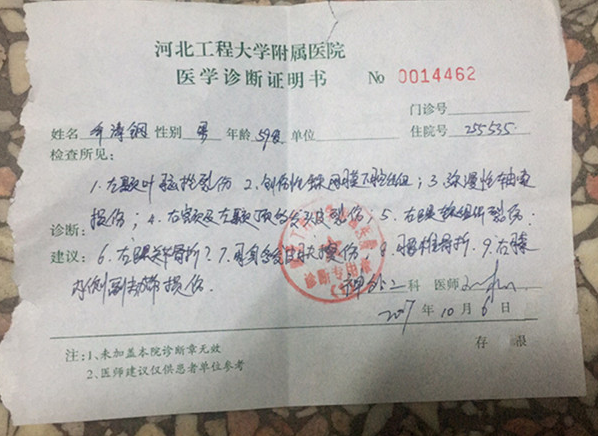 河北工程大学附属医院
医学诊断证明书 No 0014462
门诊号
姓名 性别 男 年龄 59岁 单位 住院号 255535
检查所见：
1.左颞叶脑挫裂伤 2.创伤性蛛网膜下腔出血；3.弥漫性轴索
损伤；4.右额及左颞顶部头皮裂伤；5.右眼软组织裂伤.
诊断：
建议：6.右眼眶骨折？7.多处皮肤擦伤，8.腰椎骨折.9.右膝
内侧副韧带损伤.
神外二科 医师
2017年10月6日
存 根
注：1、未加盖本院诊断章无效
2、医师建议仅供患者单位参考